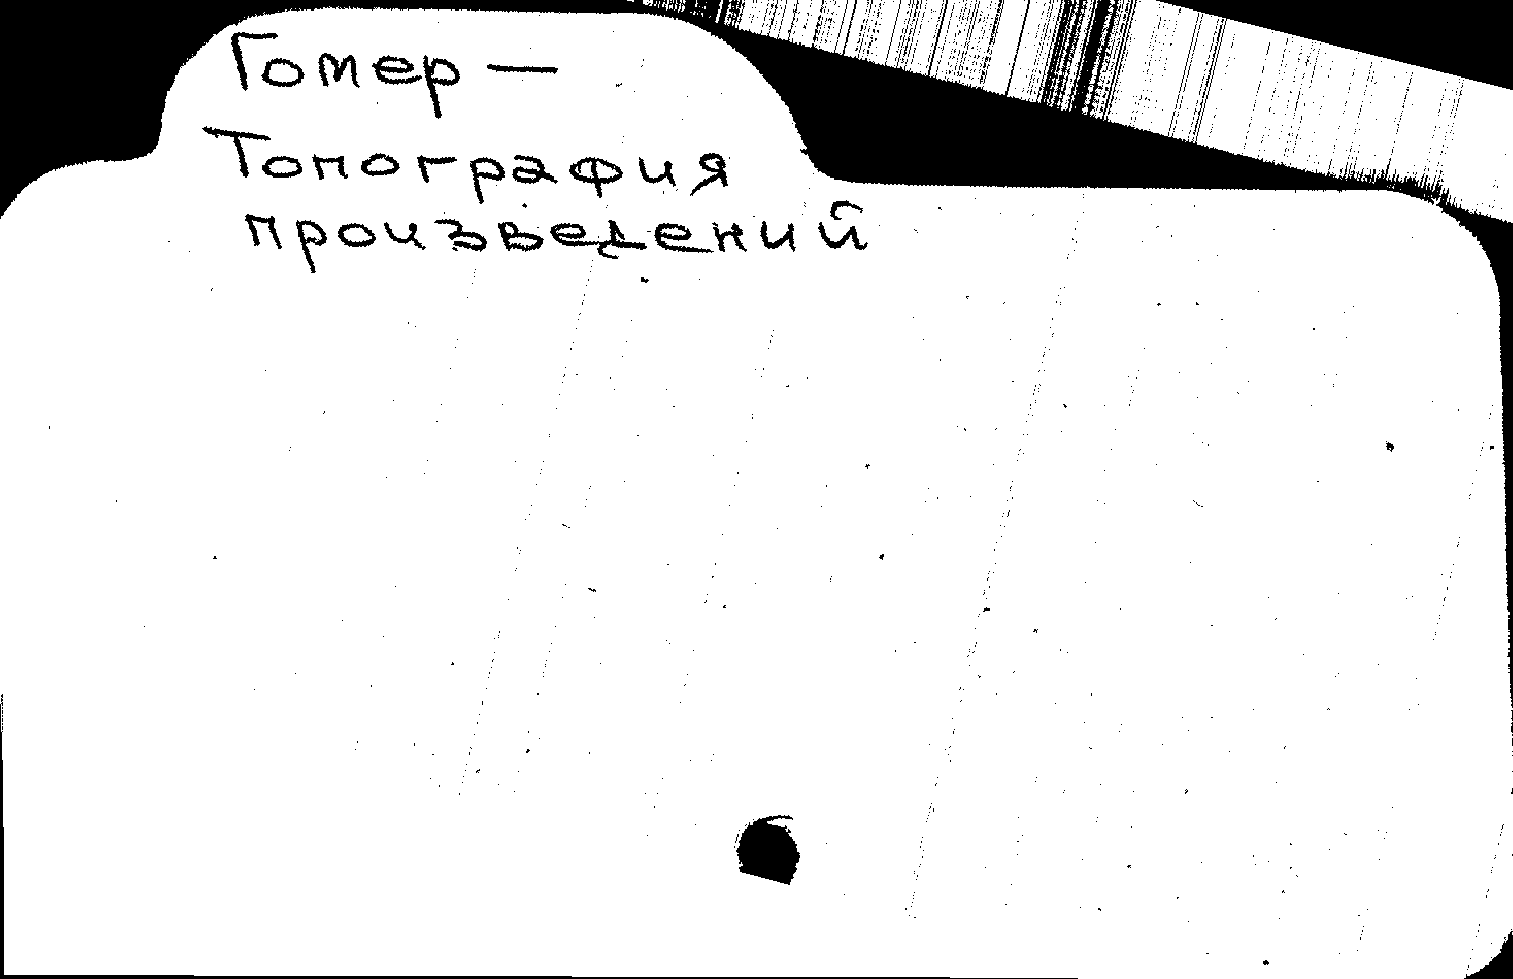 Гомер —
Топография
произведений